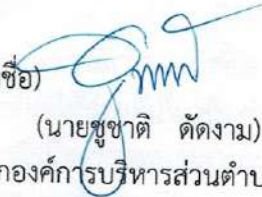 ชื่อ)
(นายชูชาติ ดัดงาม)
กองค์การบริหารส่วนตำบ